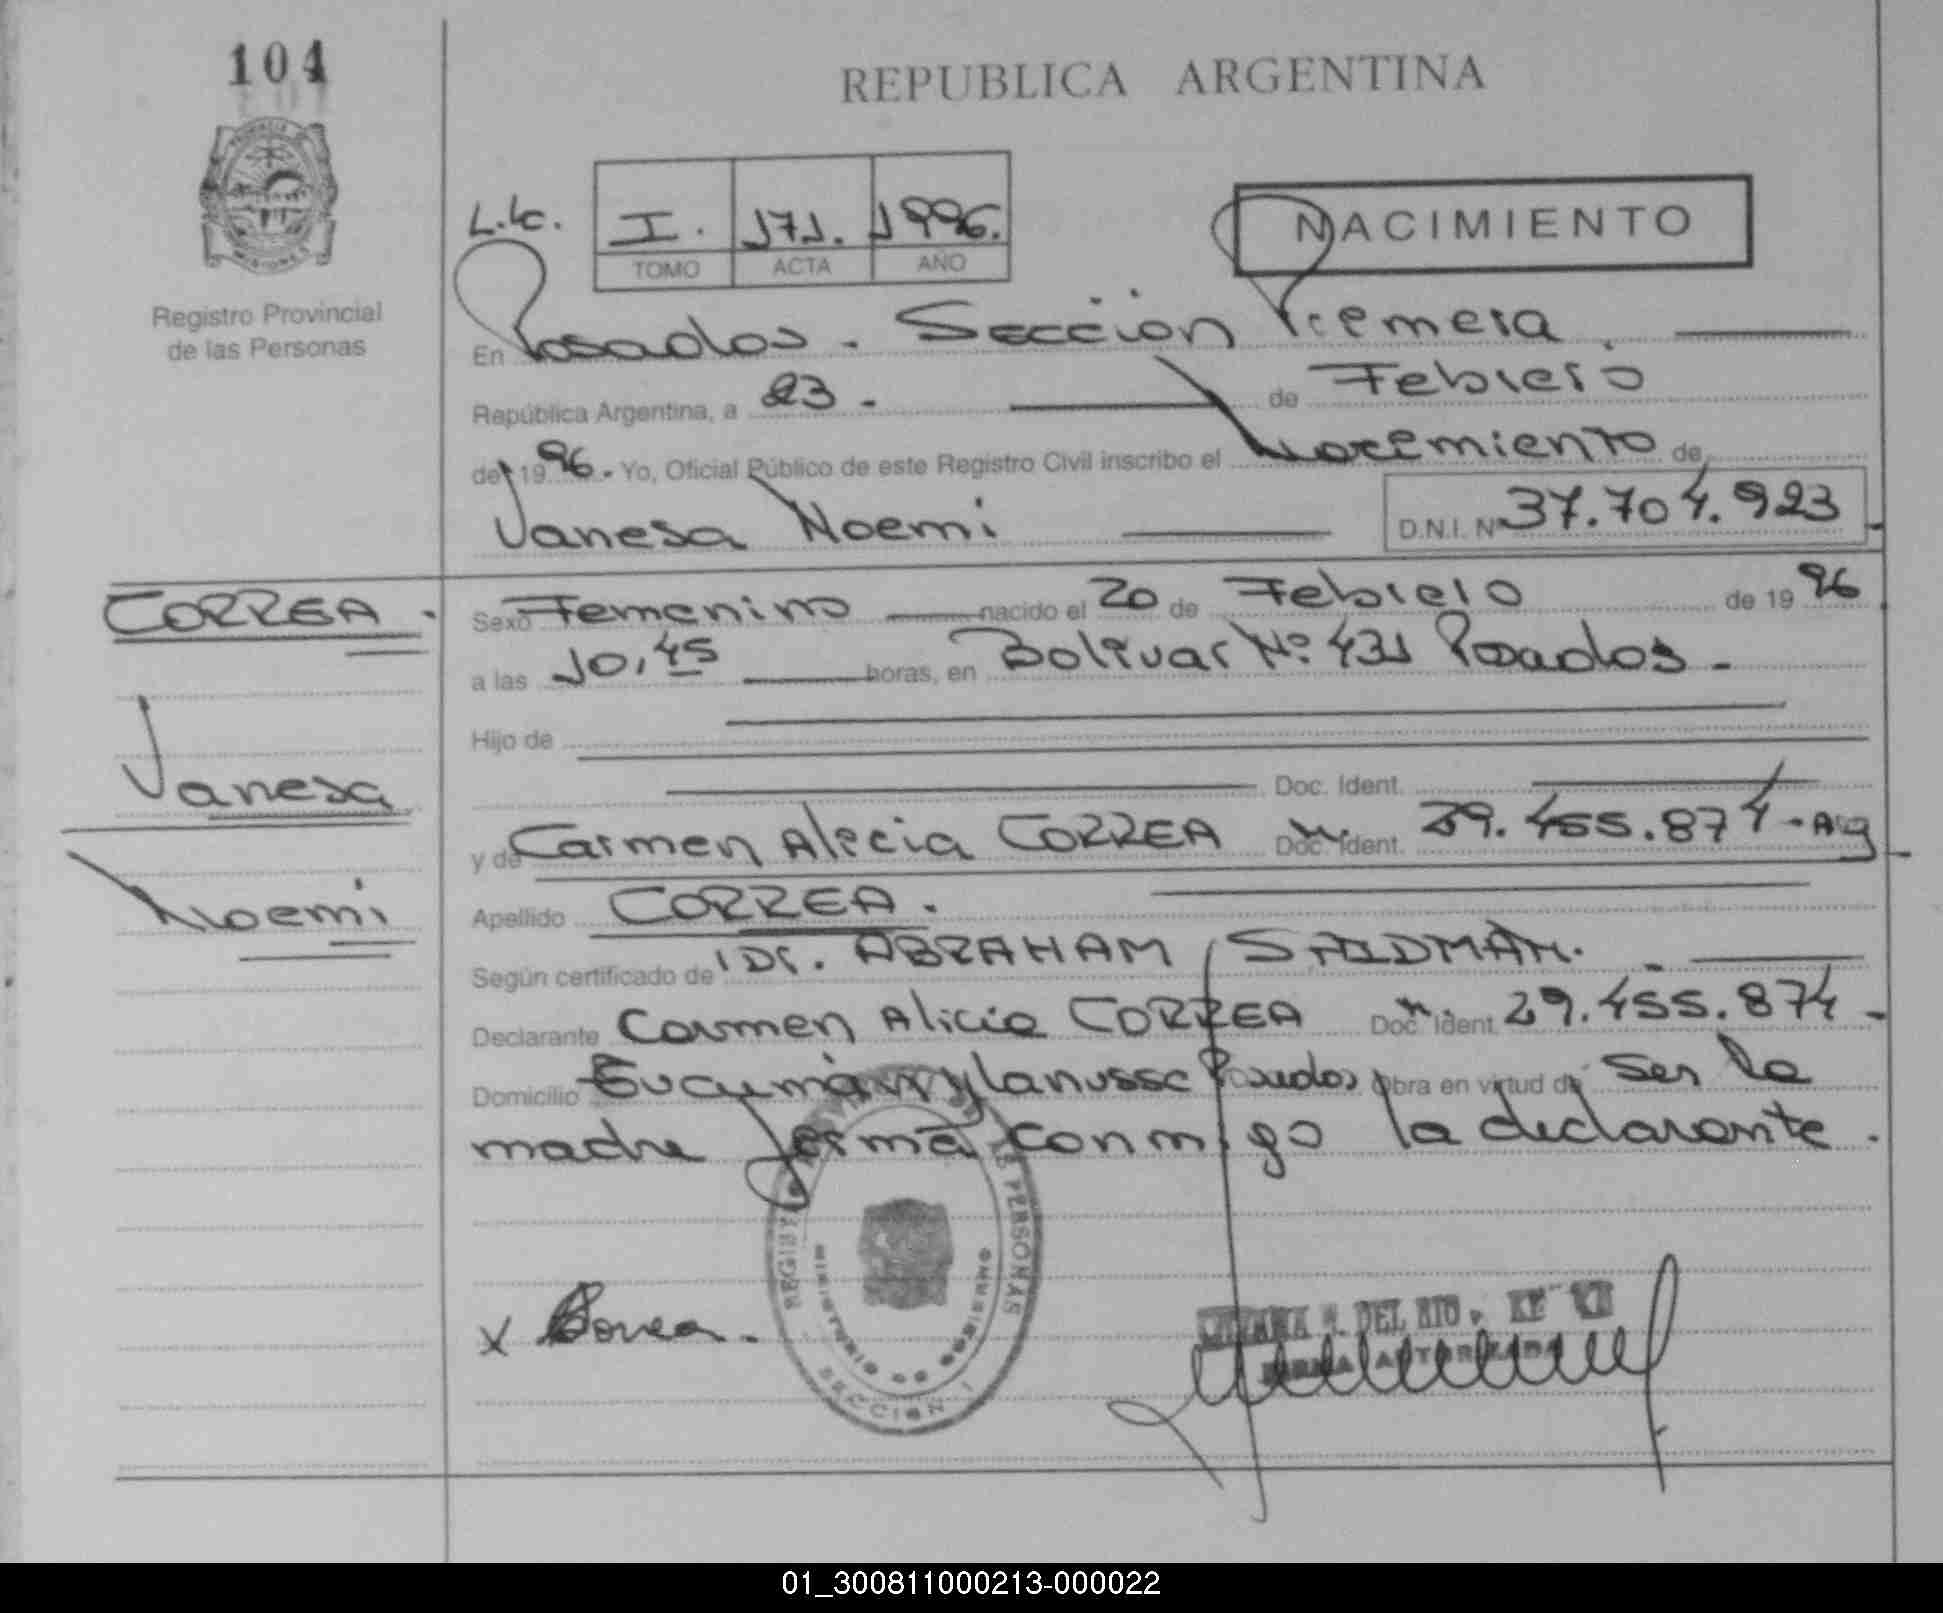 104
REPUBLICA ARGENTINA
PROVINCIA DE MISIONES
Registro Provincial
de las Personas
L.C. I. 171. 1996.
TOMO ACTA AÑO
NACIMIENTO
En Posadas. Sección Primera
República Argentina, a 23. de Febrero
del 1996. Yo, Oficial Público de este Registro Civil inscribo el Nacimiento de
Vanesa Noemi D.N.I. Nº 37.704.923
CORREA.
Vanesa
Noemi
Sexo Femenino nacido el 20 de Febrero de 1996
a las 10,45 horas, en Bolivar Nº 431 Posadas.
Hijo de
Doc. Ident.
y de Carmen Alicia CORREA Doc. Ident. 29.455.874-Arg
Apellido CORREA.
Según certificado de Dr. ABRAHAM
Declarante Carmen Alicia CORREA Doc. Ident. 29.455.874-
Domicilio Tucumán y Lanusse Posadas Obra en virtud de Ser la
madre firma conmigo la declarante.
X Correa.
REGISTRO PROVINCIAL DE LAS PERSONAS
MINISTERIO DE GOBIERNO
SECCION I
DEL RIO
FIRMA AUTORIZADA
01_300811000213-000022